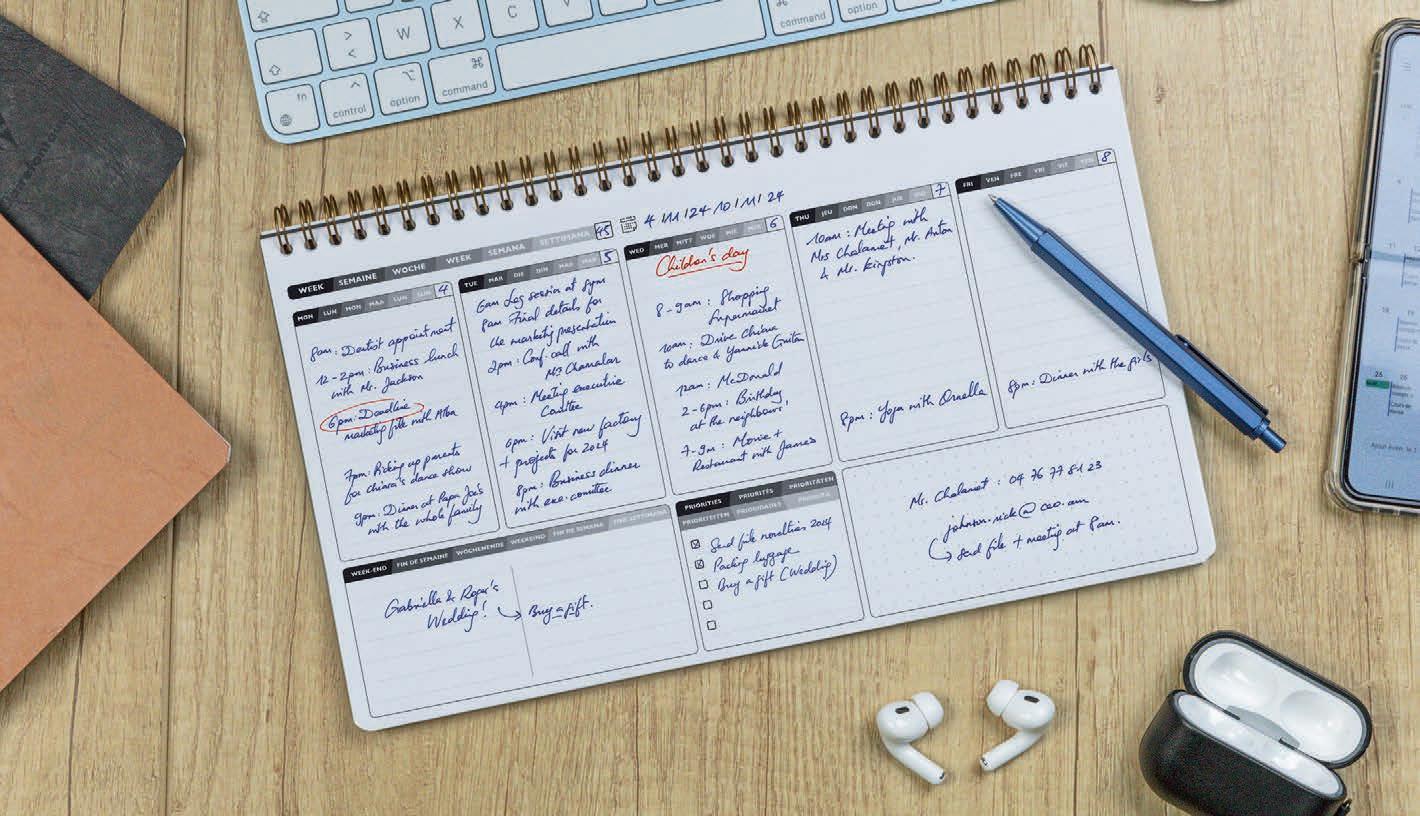 > < W X C V
fn ^ control ⌥ option ⌘ command
⌘ command option
WEEK SEMAINE WOCHE WEEK SEMANA SETTIMANA 45
4 / 11 / 24 10 / 11 / 24
MON LUN MON MAA LUN LUN 4
8am: Dentist appointment
12-2pm: Business lunch
with Mr. Jackson
6pm: Deadline
marketing file with Alba
7pm: Picking up parents
for chiara's dance show
9pm: Diner at Papa Joe's
with the whole family
TUE MAR DIE DIN MAR MAR 5
6am Log session at 8pm
8am Final details for
the marketing presentation
2pm: Conf. call with
M3 Chamalar
4pm: Meeting executive
Comittee
6pm: Visit new factory
+ projects for 2024
8pm: Business dinner
with exe. comittee
WED MER MITT WOE MIE MER 6
Children's day
8-9am: Shopping
Supermarket
10am: Drive Chiara
to dance & Yannick Guitar
12am: McDonald
2-6pm: Birthday
at the neighbours,
7-9m: Movie +
Restaurant with James
THU JEU DON DON JUE GIO 7
10am: Meeting with
Mrs Chalamet, Mr. Anton
& Mr. Kingston.
8pm: Yoga with Ornella
FRI VEN FRE VRI VIE VEN 8
8pm: Dinner with the girls
WEEK-END FIN DE SEMAINE WOCHENENDE WEEKEIND FIN DE SEMANA FINE SETTIMANA
Gabriella & Roger's
Wedding!
Buy a gift.
PRIORITIES PRIORITÉS PRIORITÄTEN
PRIORITEITEN PRIORIDADES PRIORITÀ
Send file novelties 2024
Packing luggage
Buy a gift (Wedding)
Mr. Chalamet: 04 76 77 81 23
johnson.nick@ceo.am
send file + meeting at 8am.
4
11
18 19
25 26